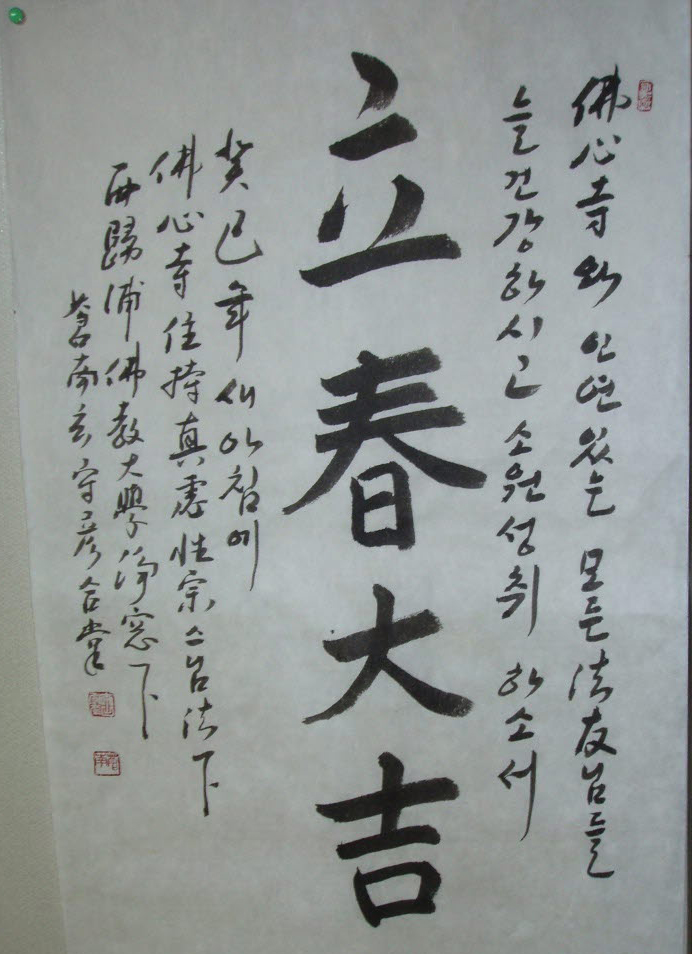 佛心寺와 인연있는 모든 法友님들
늘 건강하시고 소원성취 하소서
立春大吉
癸巳年 새아침에
佛心寺住持真虛性宗스님法下
再歸浦佛敎大學淨窓下
南玄守彦合掌